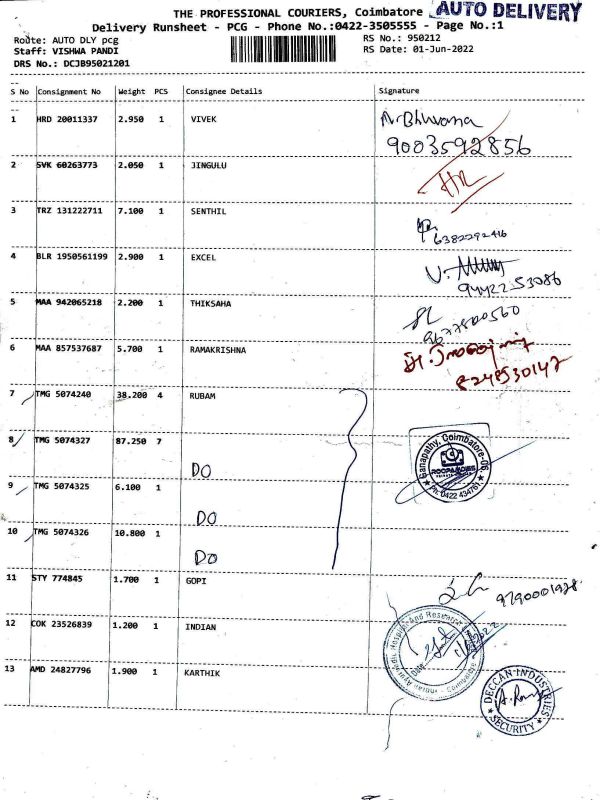 THE PROFESSIONAL COURIERS, Coimbatore AUTO DELIVERY
Delivery Runsheet - PCG - Phone No.:0422-3505555 - Page No.:1
Route: AUTO DLY pcg RS No.: 950212
Staff: VISHWA PANDI RS Date: 01-Jun-2022
DRS No.: DCJB95021201
S No Consignment No Weight PCS Consignee Details Signature
1 HRD 20011337 2.950 1 VIVEK
9003592856
2 SVK 60263773 2.050 1 JINGULU
3 TRZ 131222711 7.100 1 SENTHIL
6382292416
4 BLR 1950561199 2.900 1 EXCEL
5 MAA 942065218 2.200 1 THIKSAHA
6 MAA 857537687 5.700 1 RAMAKRISHNA
8248530147
7 TMG 5074240 38.200 4 RUBAM
8 TMG 5074327 87.250 7
DO
Ganapathy, Coimbatore-06
9 TMG 5074325 6.100 1
DO
10 TMG 5074326 10.800 1
DO
11 STY 774845 1.700 1 GOPI
12 COK 23526839 1.200 1 INDIAN
13 AMD 24827796 1.900 1 KARTHIK
DECCAN INDUSTRIES
SECURITY